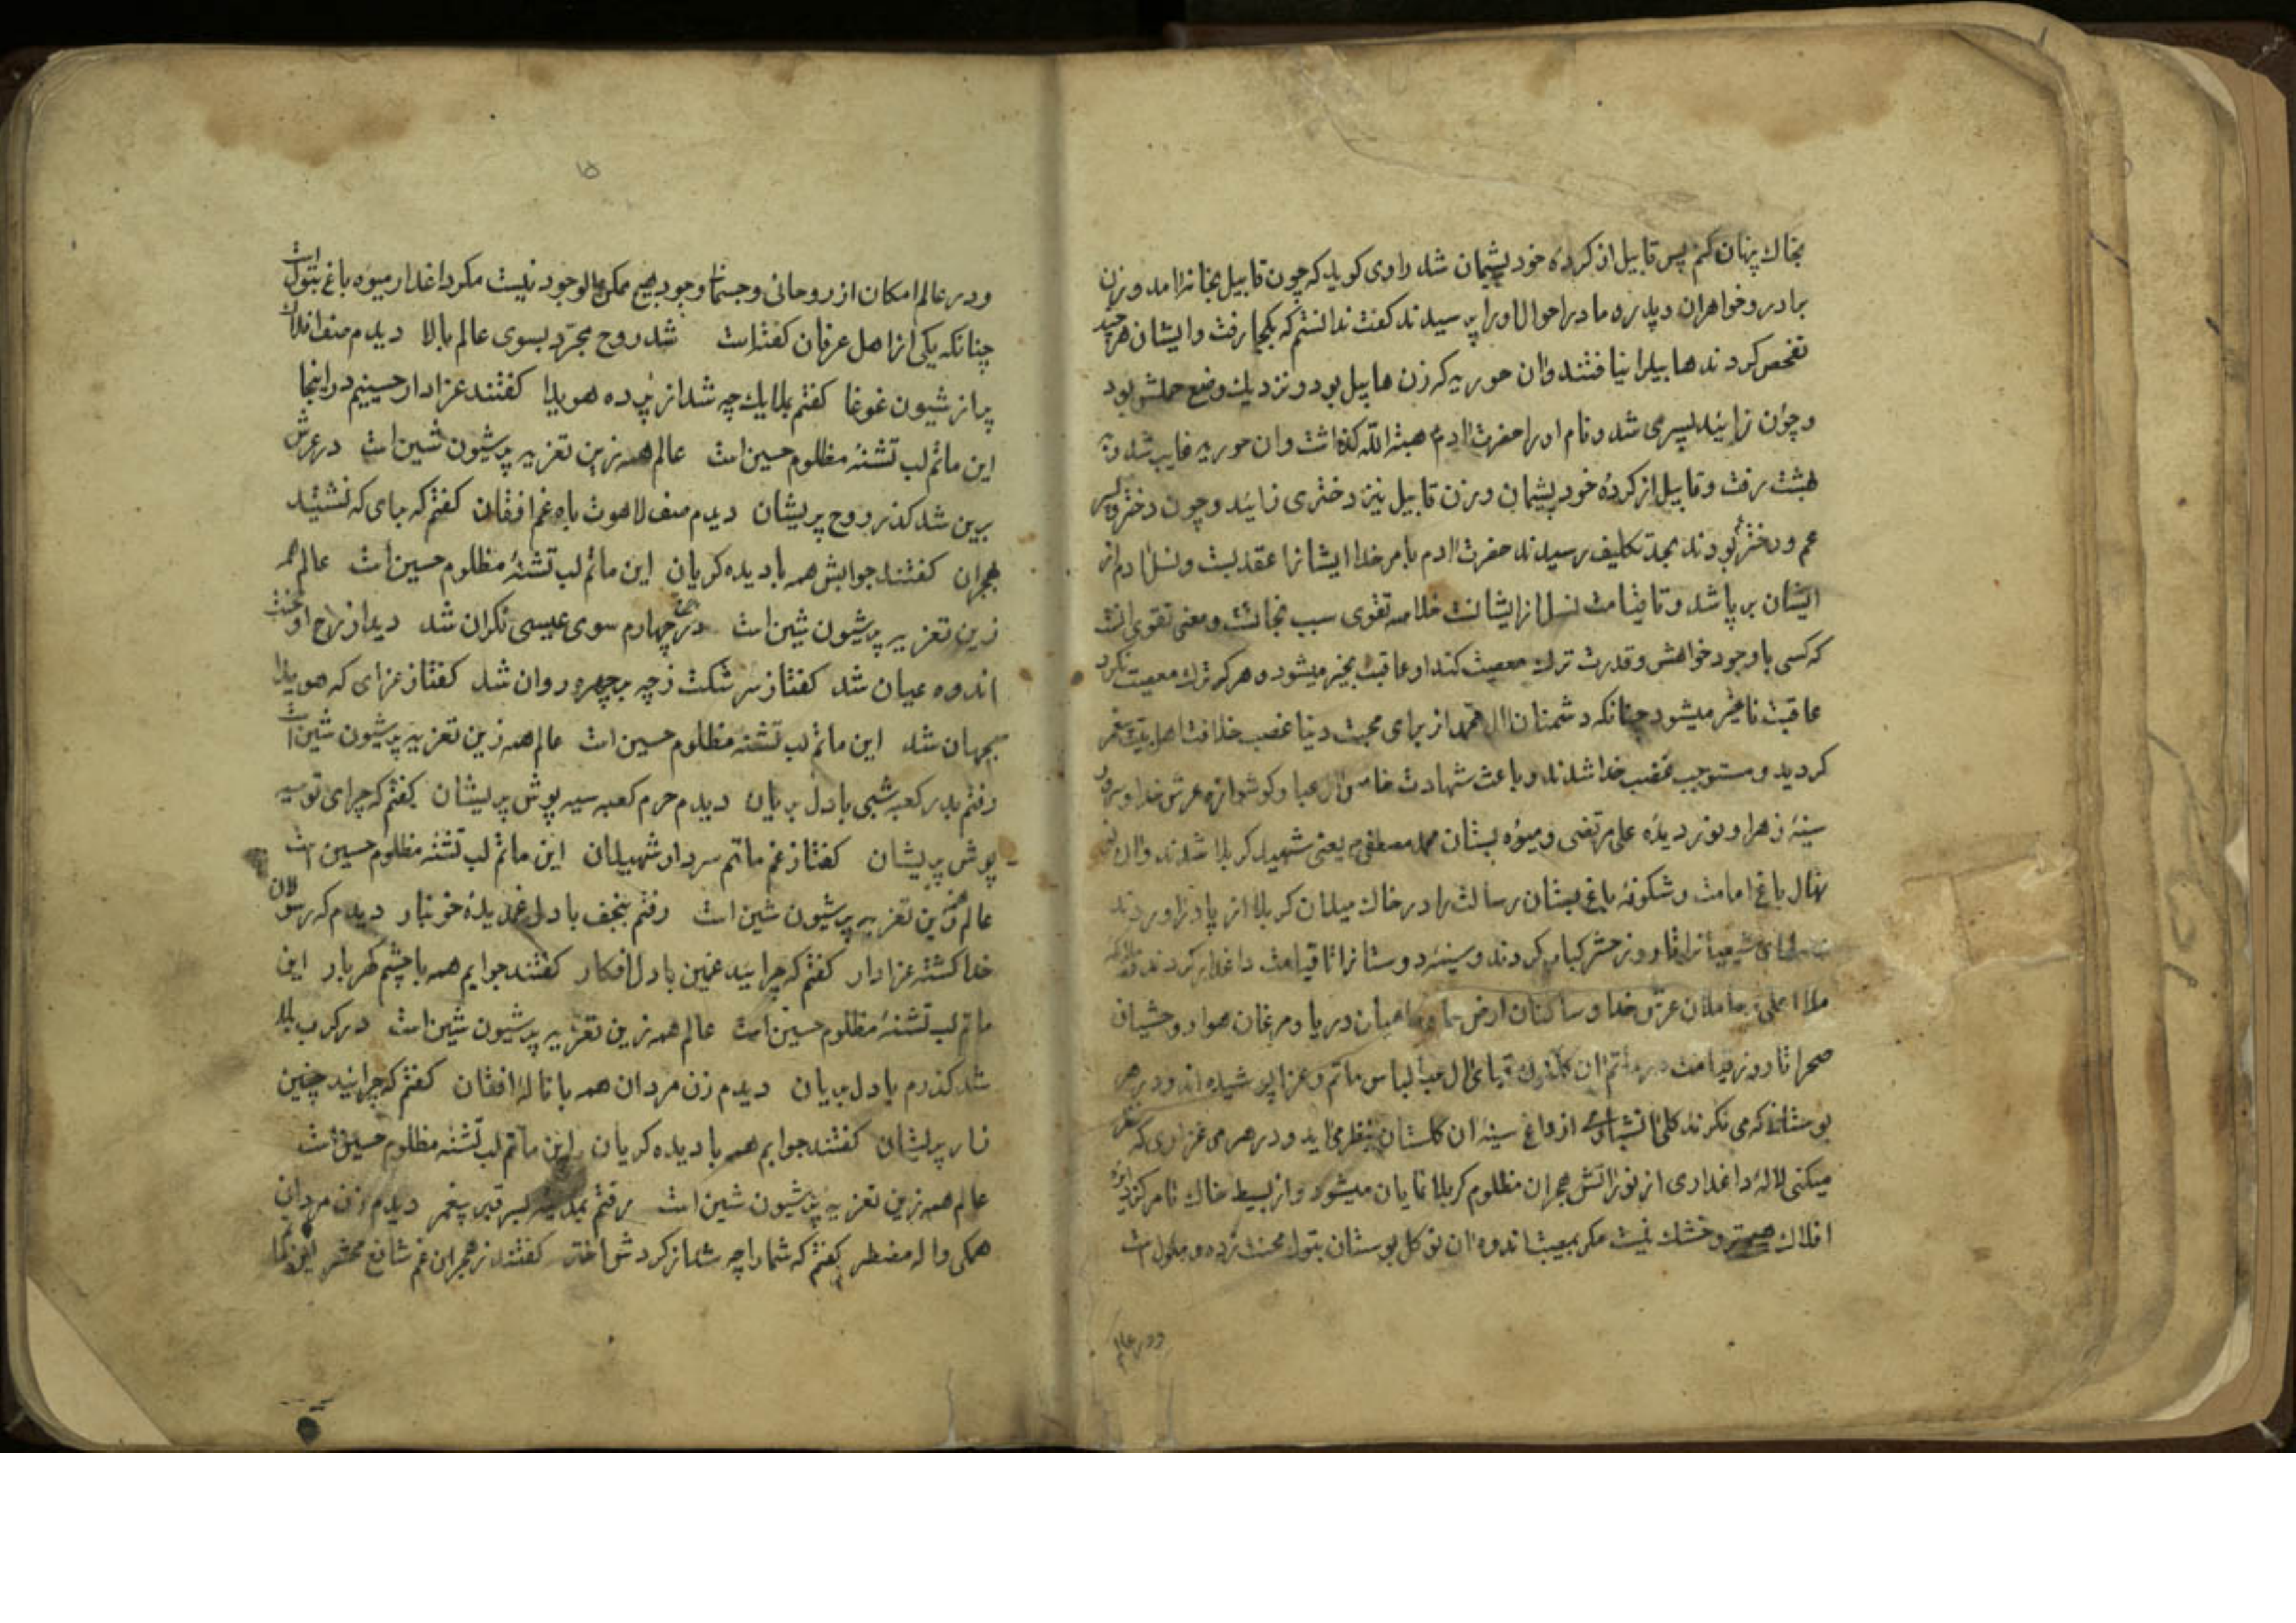 بخاك پنهان كنم پس قابیل از كردهٔ خود پشیمان شد راوی كوید كه چون قابیل بخانه آمد و زن
برادر و خواهران و پدر و مادر احوال او را پرسیدند كفت ندانستم كه بكجا رفت و ایشان هر چند
تفحص كردند هابیل را نیافتند و آن حوریه كه زن هابیل بود و نزدیك وضع حملش بود
و چون زائید پسری شد و نام او را حضرت آدم هبة الله كذاشت و آن حوریه غایب شد و به
بهشت رفت و قابیل از كردهٔ خود پشیمان و زن قابیل نیز دختری زائید و چون دختر و پسر
عم و دختر بودند بحد تكلیف رسیدند حضرت آدم بامر خدا ایشانرا عقد بست و نسل آدم از
ایشان بر پا شد و تا قیامت نسل از ایشانست خلاصه تقوی سبب نجاتست و معنی تقوی آنست
كه كسی با وجود خواهش و قدرت ترك معصیت كند او عاقبت بخیر میشود و هر كه ترك معصیت نكرد
عاقبت نا بخیر میشود چنانكه دشمنان آل محمد از برای محبت دنیا غصب خلافت اهلبیت پیغمبر
كردند و مستوجب غضب خدا شدند و باعث شهادت خامس آل عبا و كوشواره عرش خدا و سرور
سینهٔ زهرا و نور دیدهٔ علی مرتضی و میوهٔ بستان محمد مصطفی یعنی شهید كربلا شدند و آن
نهال باغ امامت و شكوفهٔ باغ بستان رسالت را در خاك میدان كربلا از پا در آوردند
شیعیانرا تا روز حشر كباب كردند و سینهٔ دوستانرا تا قیامت داغدار كردند
ملاء اعلی و حاملان عرش خدا و ساكنان ارض سما و ماهیان دریا و مرغان هوا و وحشیان
صحرا تا روز قیامت در ماتم آن آل عبا لباس ماتم و عزا پوشیده اند و در هر
بوستان كه می نكرند كلی از داغ سینهٔ آن كلستان بنظر می آید و در هر مرغزاری كه نظر
میكنی لالهٔ داغداری از نور آتش هجران مظلوم كربلا نمایان میشود و از بسیط خاك تا مركز
افلاك هیچ تر و خشك نیست مكر بمصیبت اندوه آن نو كل بوستان بتول محنت زده و ملول است
و در عالم
۱۵
و در عالم امكان از روحانی و جسمانی وجود هیچ ممكن الوجود نیست مكر داغدار میوه باغ بتول است
چنانكه یكی از اهل عرفان كفته است شد روح مجرّد بسوی عالم بالا دیدم صف افلاك
پر از شیون غوغا كفتم بملایك چه شد از پرده هویدا كفتند عزادار حسینیم در اینجا
این ماتم لب تشنهٔ مظلوم حسین است عالم همه زین تعزیه پر شیون شین است در عرش
برین شد كذر روح پریشان دیدم صف لاهوت باه غم افغان كفتم كه بپای كه نشستید
بهجران كفتند جوابش همه با دیده كریان این ماتم لب تشنهٔ مظلوم حسین است عالم همه
زین تعزیه پر شیون شین است در چرخ چهارم سوی عیسی نكران شد دید از رخ او محنت
اندوه عیان شد كفتا ز سرشكت ز چه بر چهره روان شد كفتا ز عزای كه هویدا
بجهان شد این ماتم لب تشنهٔ مظلوم حسین است عالم همه زین تعزیه پر شیون شین است
رفتم بدر كعبه شبی با دل بریان دیدم حرم كعبه سیه پوش پریشان كفتم كه چرای تو سیه
پوش پریشان كفتا ز غم ماتم سردار شهیدان این ماتم لب تشنهٔ مظلوم حسین است
عالم همه زین تعزیه پر شیون شین است رفتم بنجف با دل غمدیدهٔ خونبار دیدم كه رسولان
خدا كشته عزادار كفتم كه چرائید غمین با دل افكار كفتند جوابم همه با چشم كهربار این
ماتم لب تشنهٔ مظلوم حسین است عالم همه زین تعزیه پر شیون شین است در كرب بلا
شد كذرم با دل بریان دیدم زن مردان همه با نالهٔ افغان كفتم كه چرائید چنین
زار پریشان كفتند جوابم همه با دیده كریان این ماتم لب تشنهٔ مظلوم حسین است
عالم همه زین تعزیه پر شیون شین است رفتم بمدینه بسر قبر پیغمبر دیدم زن مردان
همكی واله مضطر كفتم كه شما را چه شد از كردش اختر كفتند ز هجران غم شافع محشر این ماتم